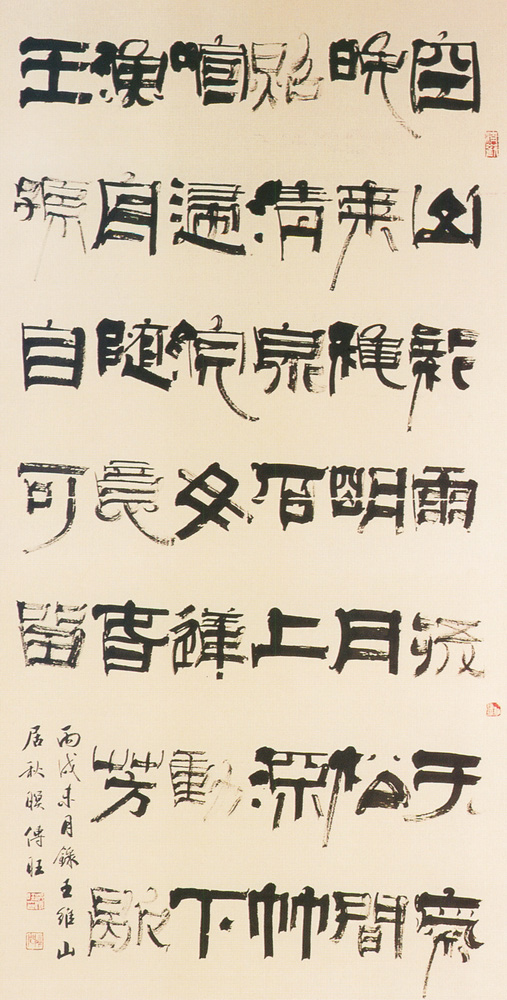 空山新雨後天氣
晚來秋明月松間
照清泉石上流竹
喧歸浣女蓮動下
漁舟隨意春芳歇
王孫自可留
丙戌未月錄王維山
居秋暝 傳旺